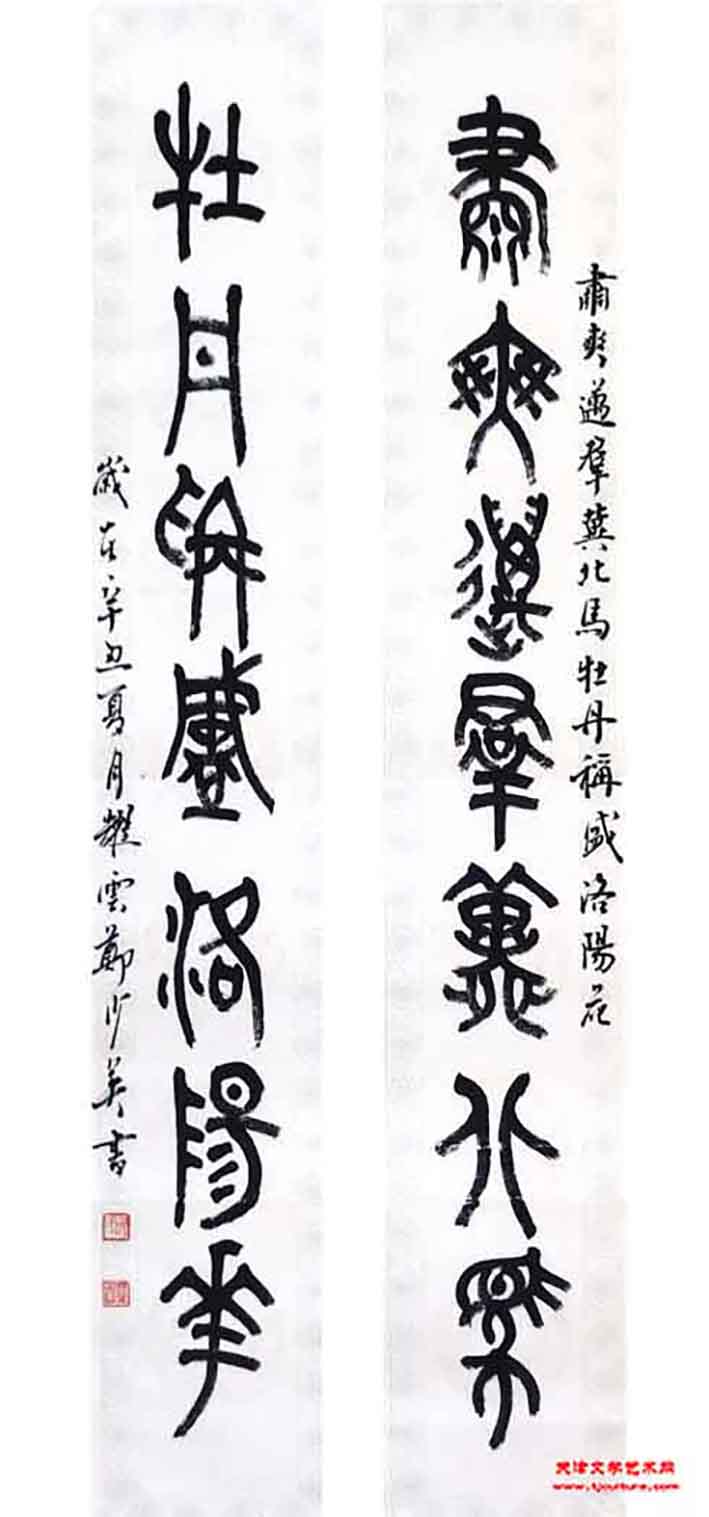 肅爽邁羣冀北馬
肅爽邁羣冀北馬牡丹稱盛洛陽花
牡丹稱盛洛陽華
歲在辛丑夏月耀雲鄭少英書
天津文学艺术网
www.tjculture.com